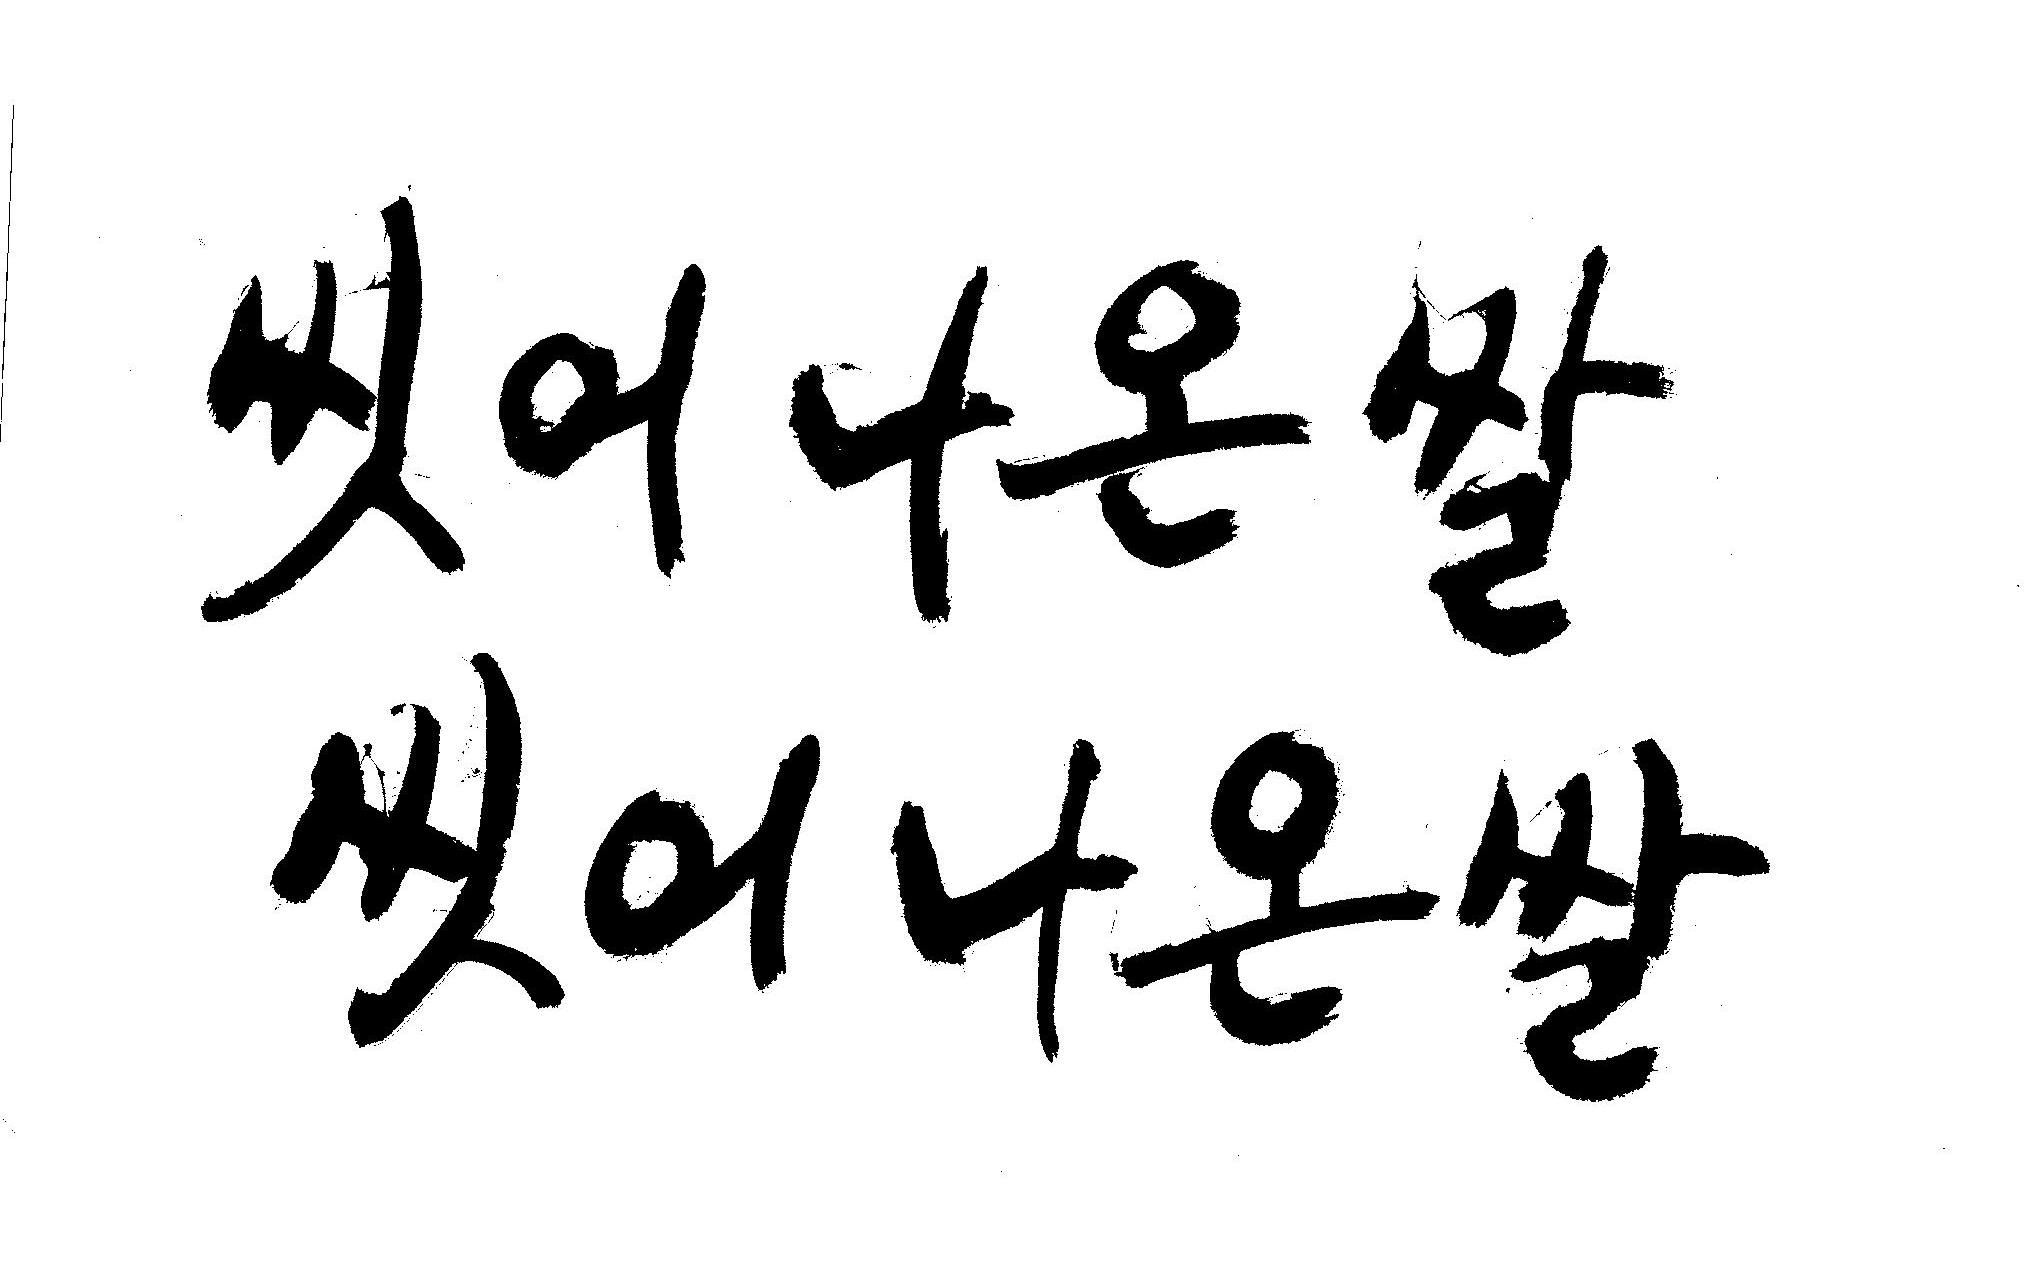 씻어 나온 쌀
씻어 나온 쌀